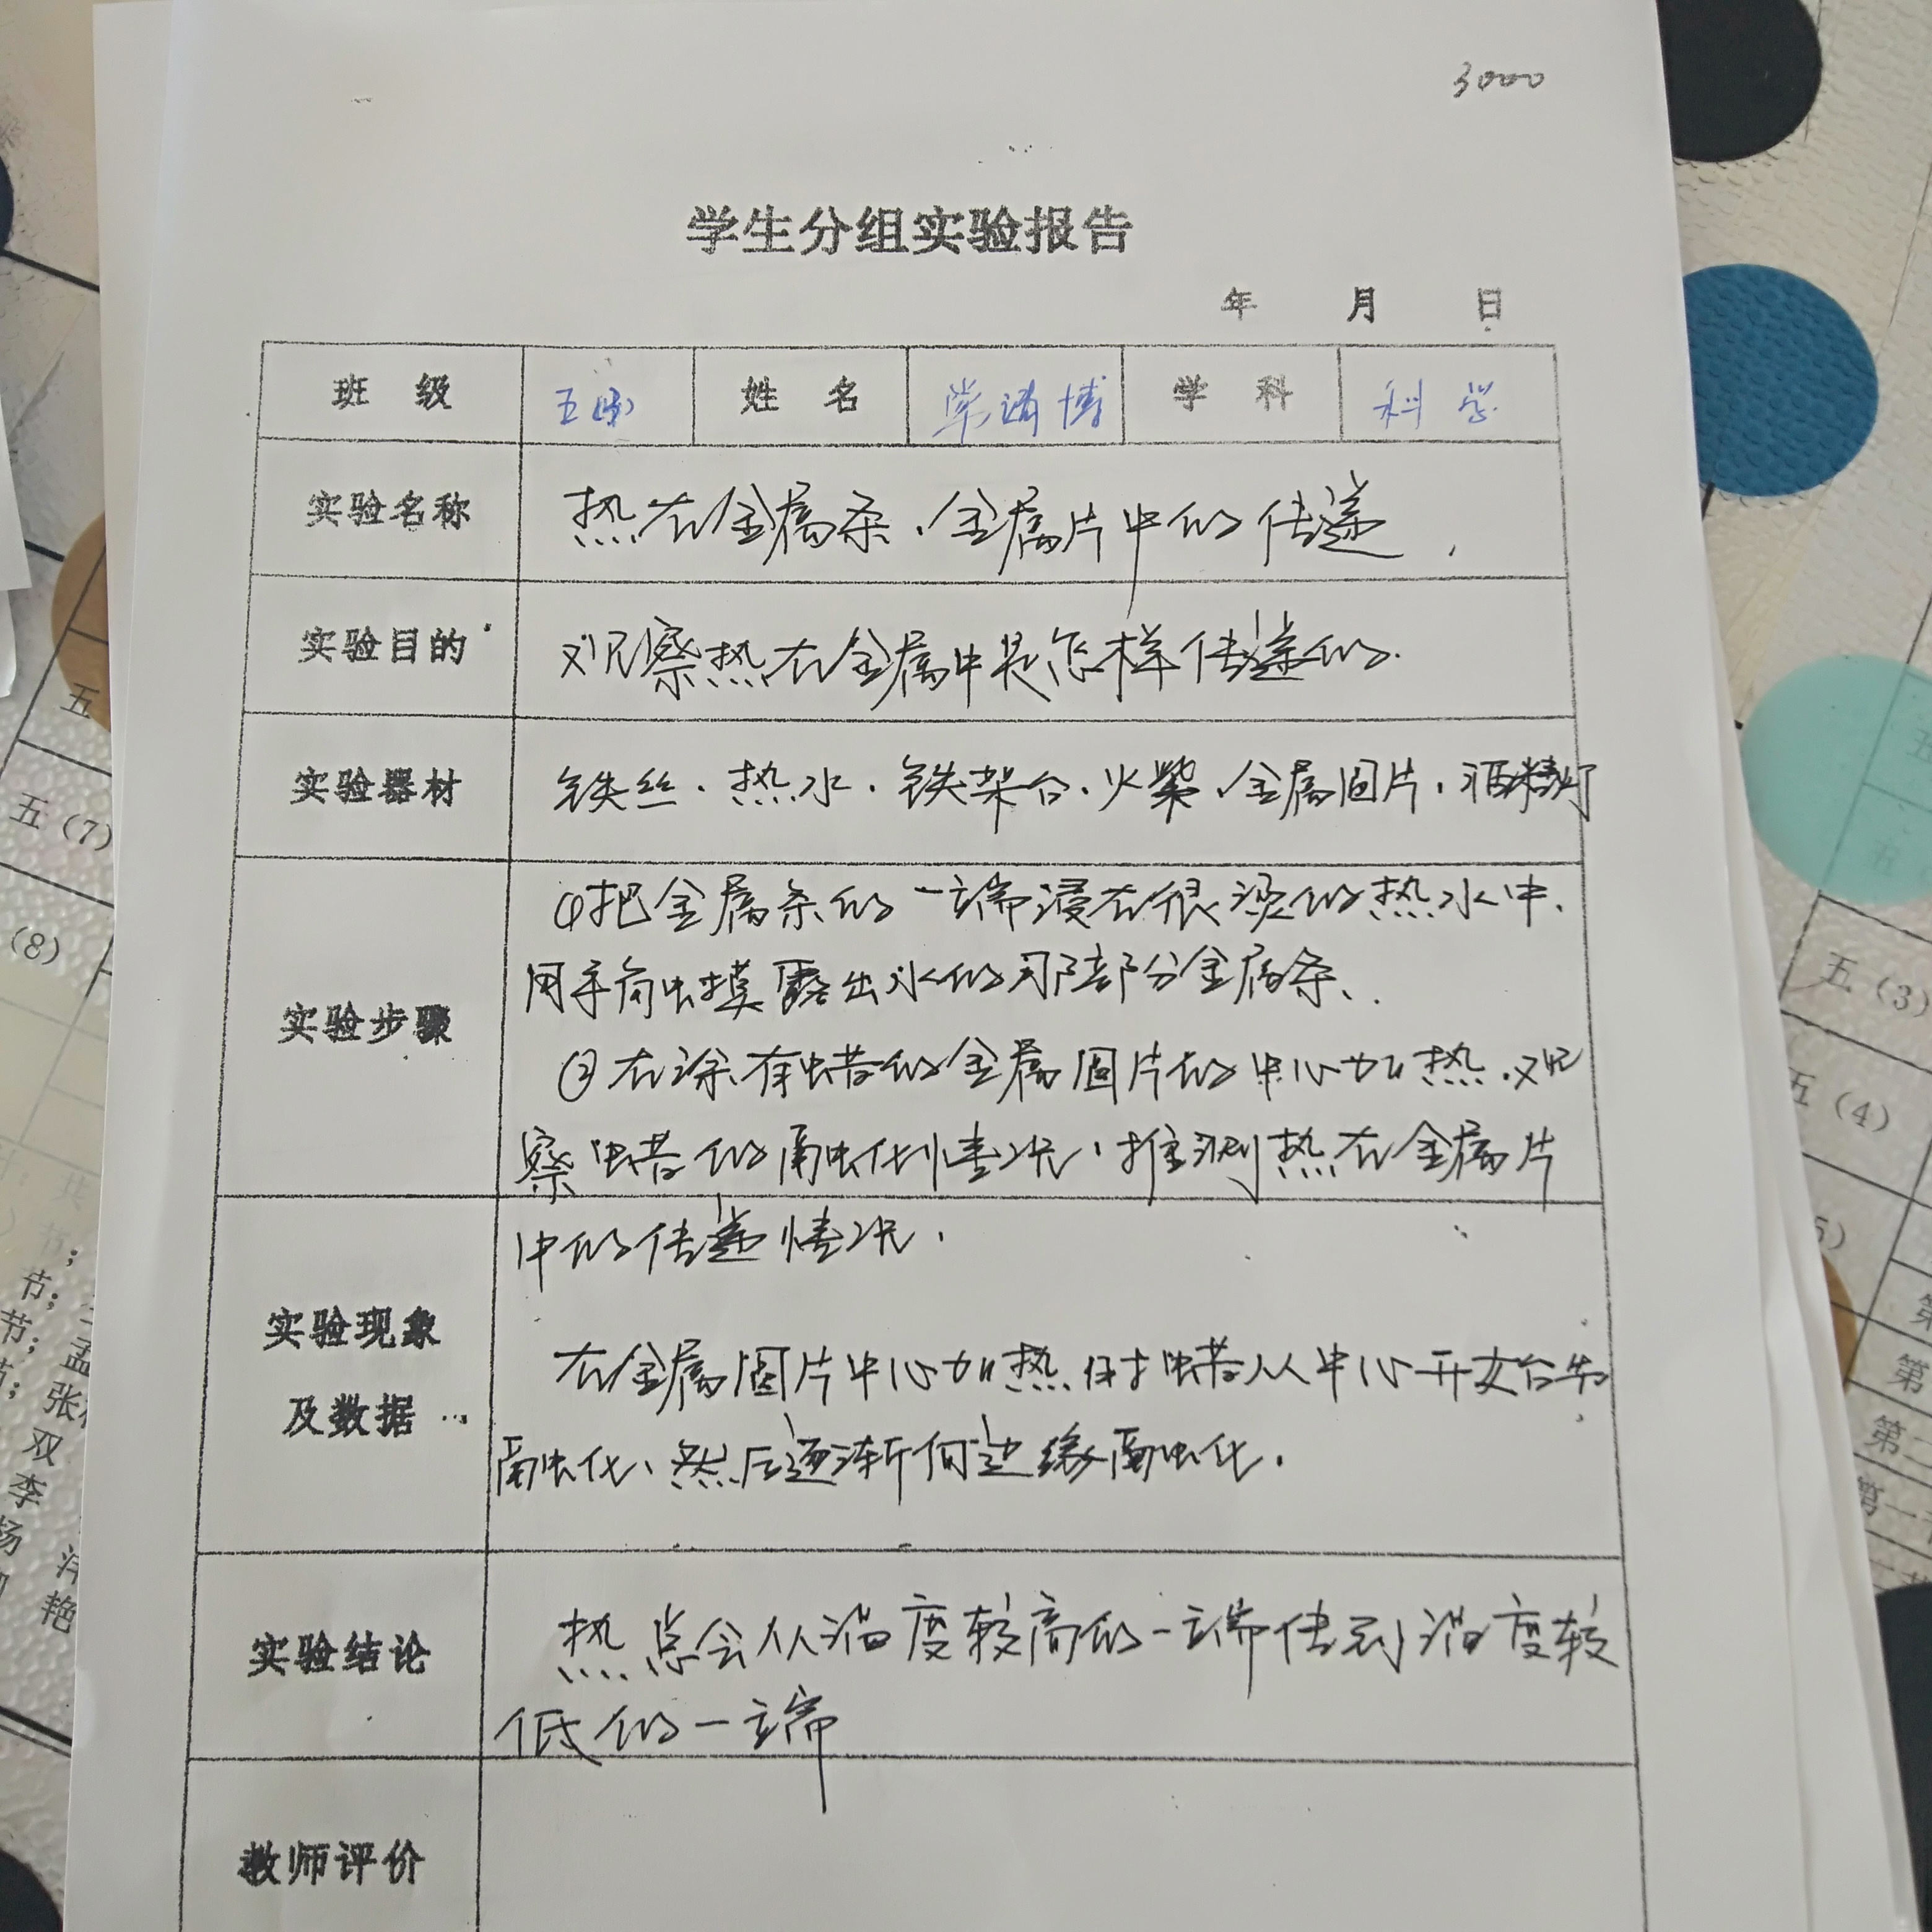 3000
学生分组实验报告
年 月 日
班 级 姓 名 学 科 科学
实验名称 热在金属条、金属片中的传递.
实验目的 观察热在金属中是怎样传递的.
实验器材 铁丝、热水、铁架台、火柴、金属圆片、酒精灯
实验步骤
①把金属条的一端浸在很烫的热水中、
用手触摸露出水的那部分金属条、
②在涂有蜡的金属圆片的中心加热、观
察蜡的融化情况、推测热在金属片
中的传递情况.
实验现象
及数据
在金属圆片中心加热时蜡从中心开始先
融化、然后逐渐向边缘融化.
实验结论 热总会从温度较高的一端传到温度较
低的一端
教师评价
五
五(7)
(8)
节;
节;
张
双
李
杨
艳
五(3)
五(4)
5)
第
第二
第一